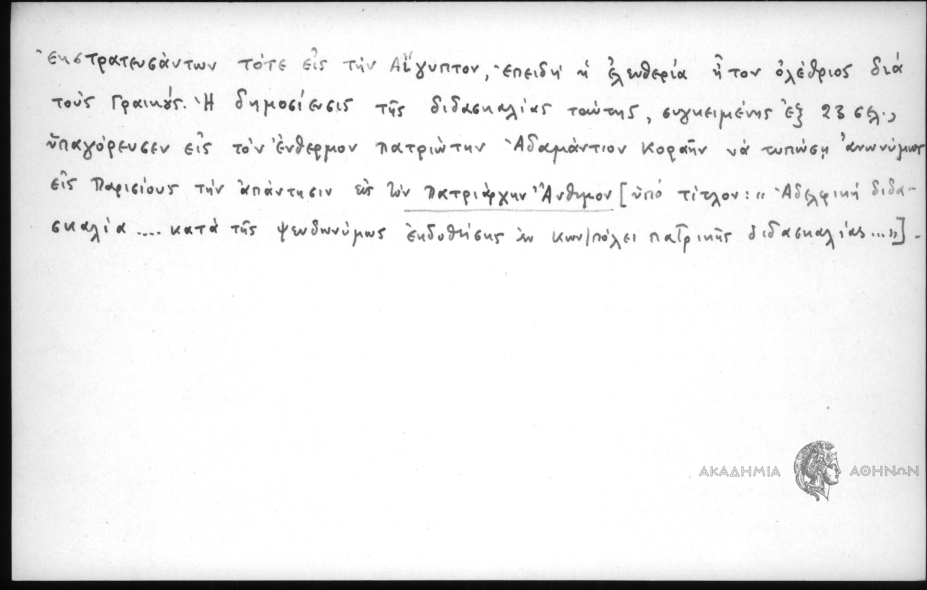 ἐκστρατευσάντων τότε εἰς τὴν Αἴγυπτον, ἐπειδὴ ἡ ἐλευθερία ἦτον ὀλέθριος διὰ
τοὺς Γραικούς. Ἡ δημοσίευσις τῆς διδασκαλίας ταύτης, συγκειμένης ἐξ 23 σελ.,
ὑπαγόρευσεν εἰς τὸν ἔνθερμον πατριώτην Ἀδαμάντιον Κοραῆν νὰ τυπώσῃ ἀνωνύμως
εἰς Παρισίους τὴν ἀπάντησιν εἰς τὸν Πατριάρχην Ἄνθιμον [ὑπὸ τίτλον: «Ἀδελφικὴ διδα-
σκαλία .... κατὰ τῆς ψευδωνύμως ἐκδοθείσης ἐν Κων/πόλει πατρικῆς διδασκαλίας...»].-
ΑΚΑΔΗΜΙΑ ΑΘΗΝΩΝ